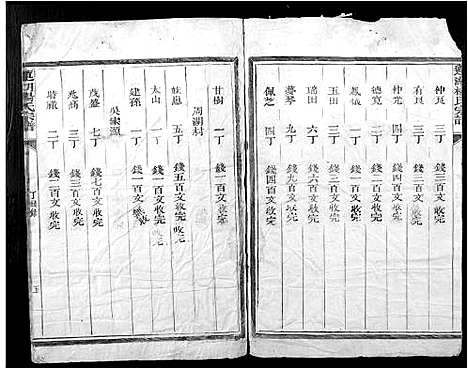 仲良 三丁 錢三百文收完
有良 四丁 錢四百文收完
仲光 一丁 錢一百文收完
德寬 二丁 錢二百文收完
鳳儀 一丁 錢一百文收完
玉田 三丁 錢三百文收完
瑤田 六丁 錢六百文收完
琴 九丁 錢九百文收完
佩芝 四丁 錢四百文收完
甘樹 一丁 錢一百文收完
周湖村
五丁 錢五百文收完
太山 一丁 錢一百文收完
建孫 一丁 錢一百文
吳家源
茂盛 七丁 錢七百文收完
二丁 錢二百文收完
蓮湖楊氏宗譜
丁錢錄
五